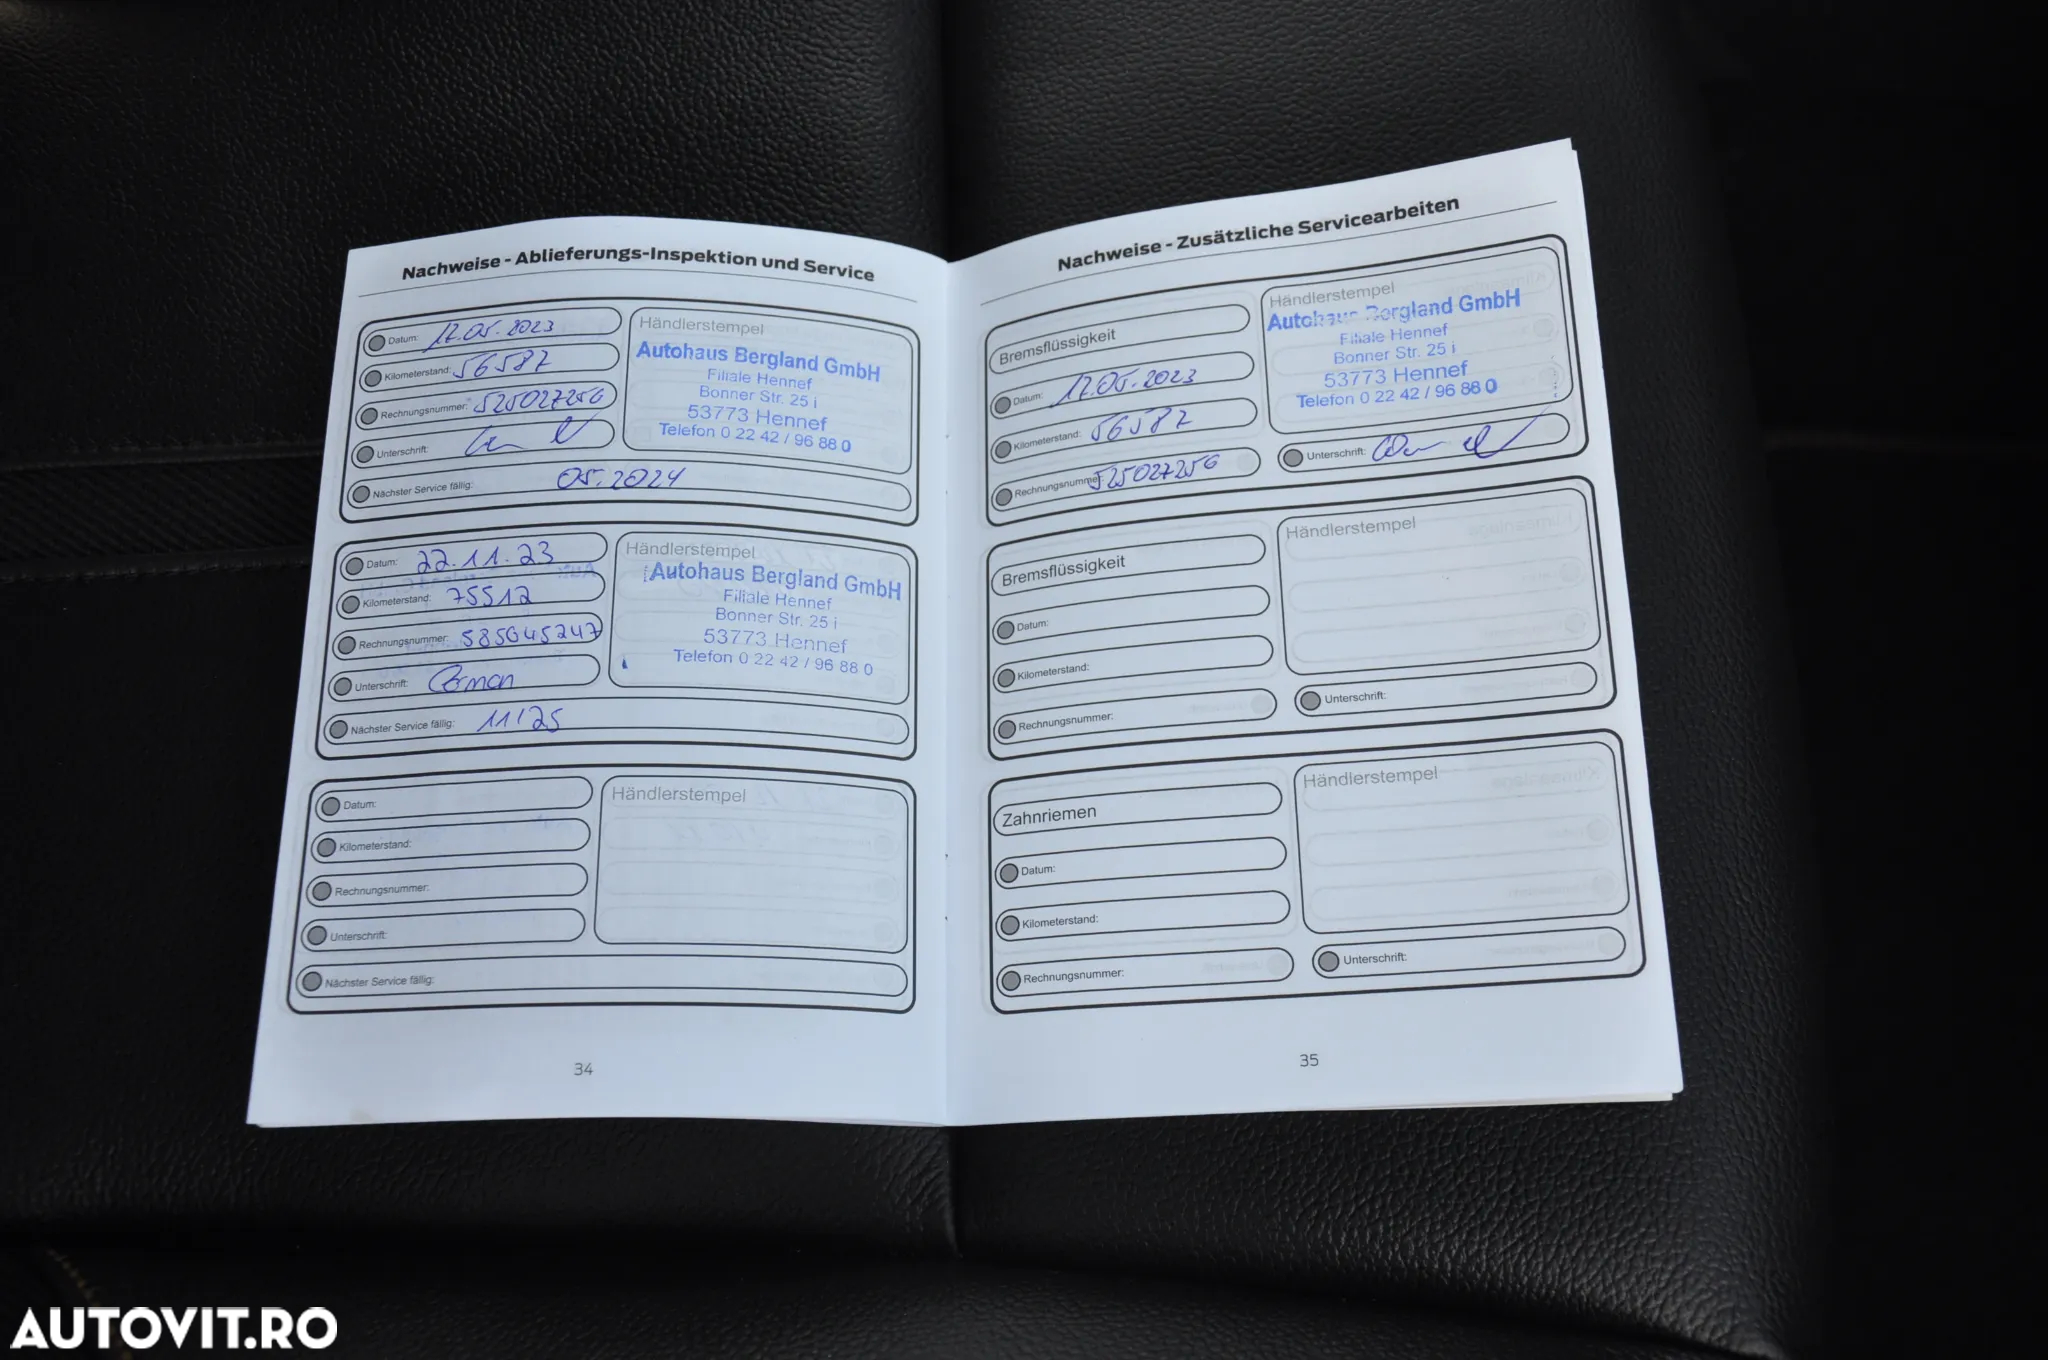 Nachweise - Ablieferungs-Inspektion und Service
Datum: 12.05.2023
Kilometerstand: 56587
Rechnungsnummer: 525027256
Unterschrift:
Nächster Service fällig: 05.2024
Händlerstempel
Autohaus Bergland GmbH
Filiale Hennef
Bonner Str. 25 i
53773 Hennef
Telefon 0 22 42 / 96 88 0
Datum: 22.11.23
Kilometerstand: 75512
Rechnungsnummer: 585045247
Unterschrift:
Nächster Service fällig: 11/25
Händlerstempel
Autohaus Bergland GmbH
Filiale Hennef
Bonner Str. 25 i
53773 Hennef
Telefon 0 22 42 / 96 88 0
Datum:
Kilometerstand:
Rechnungsnummer:
Unterschrift:
Nächster Service fällig:
Händlerstempel
34
Nachweise - Zusätzliche Servicearbeiten
Bremsflüssigkeit
Datum: 12.05.2023
Kilometerstand: 56587
Rechnungsnummer: 525027256
Händlerstempel
Autohaus Bergland GmbH
Filiale Hennef
Bonner Str. 25 i
53773 Hennef
Telefon 0 22 42 / 96 88 0
Unterschrift:
Bremsflüssigkeit
Datum:
Kilometerstand:
Rechnungsnummer:
Händlerstempel
Unterschrift:
Zahnriemen
Datum:
Kilometerstand:
Rechnungsnummer:
Händlerstempel
Unterschrift:
35
AUTOVIT.RO